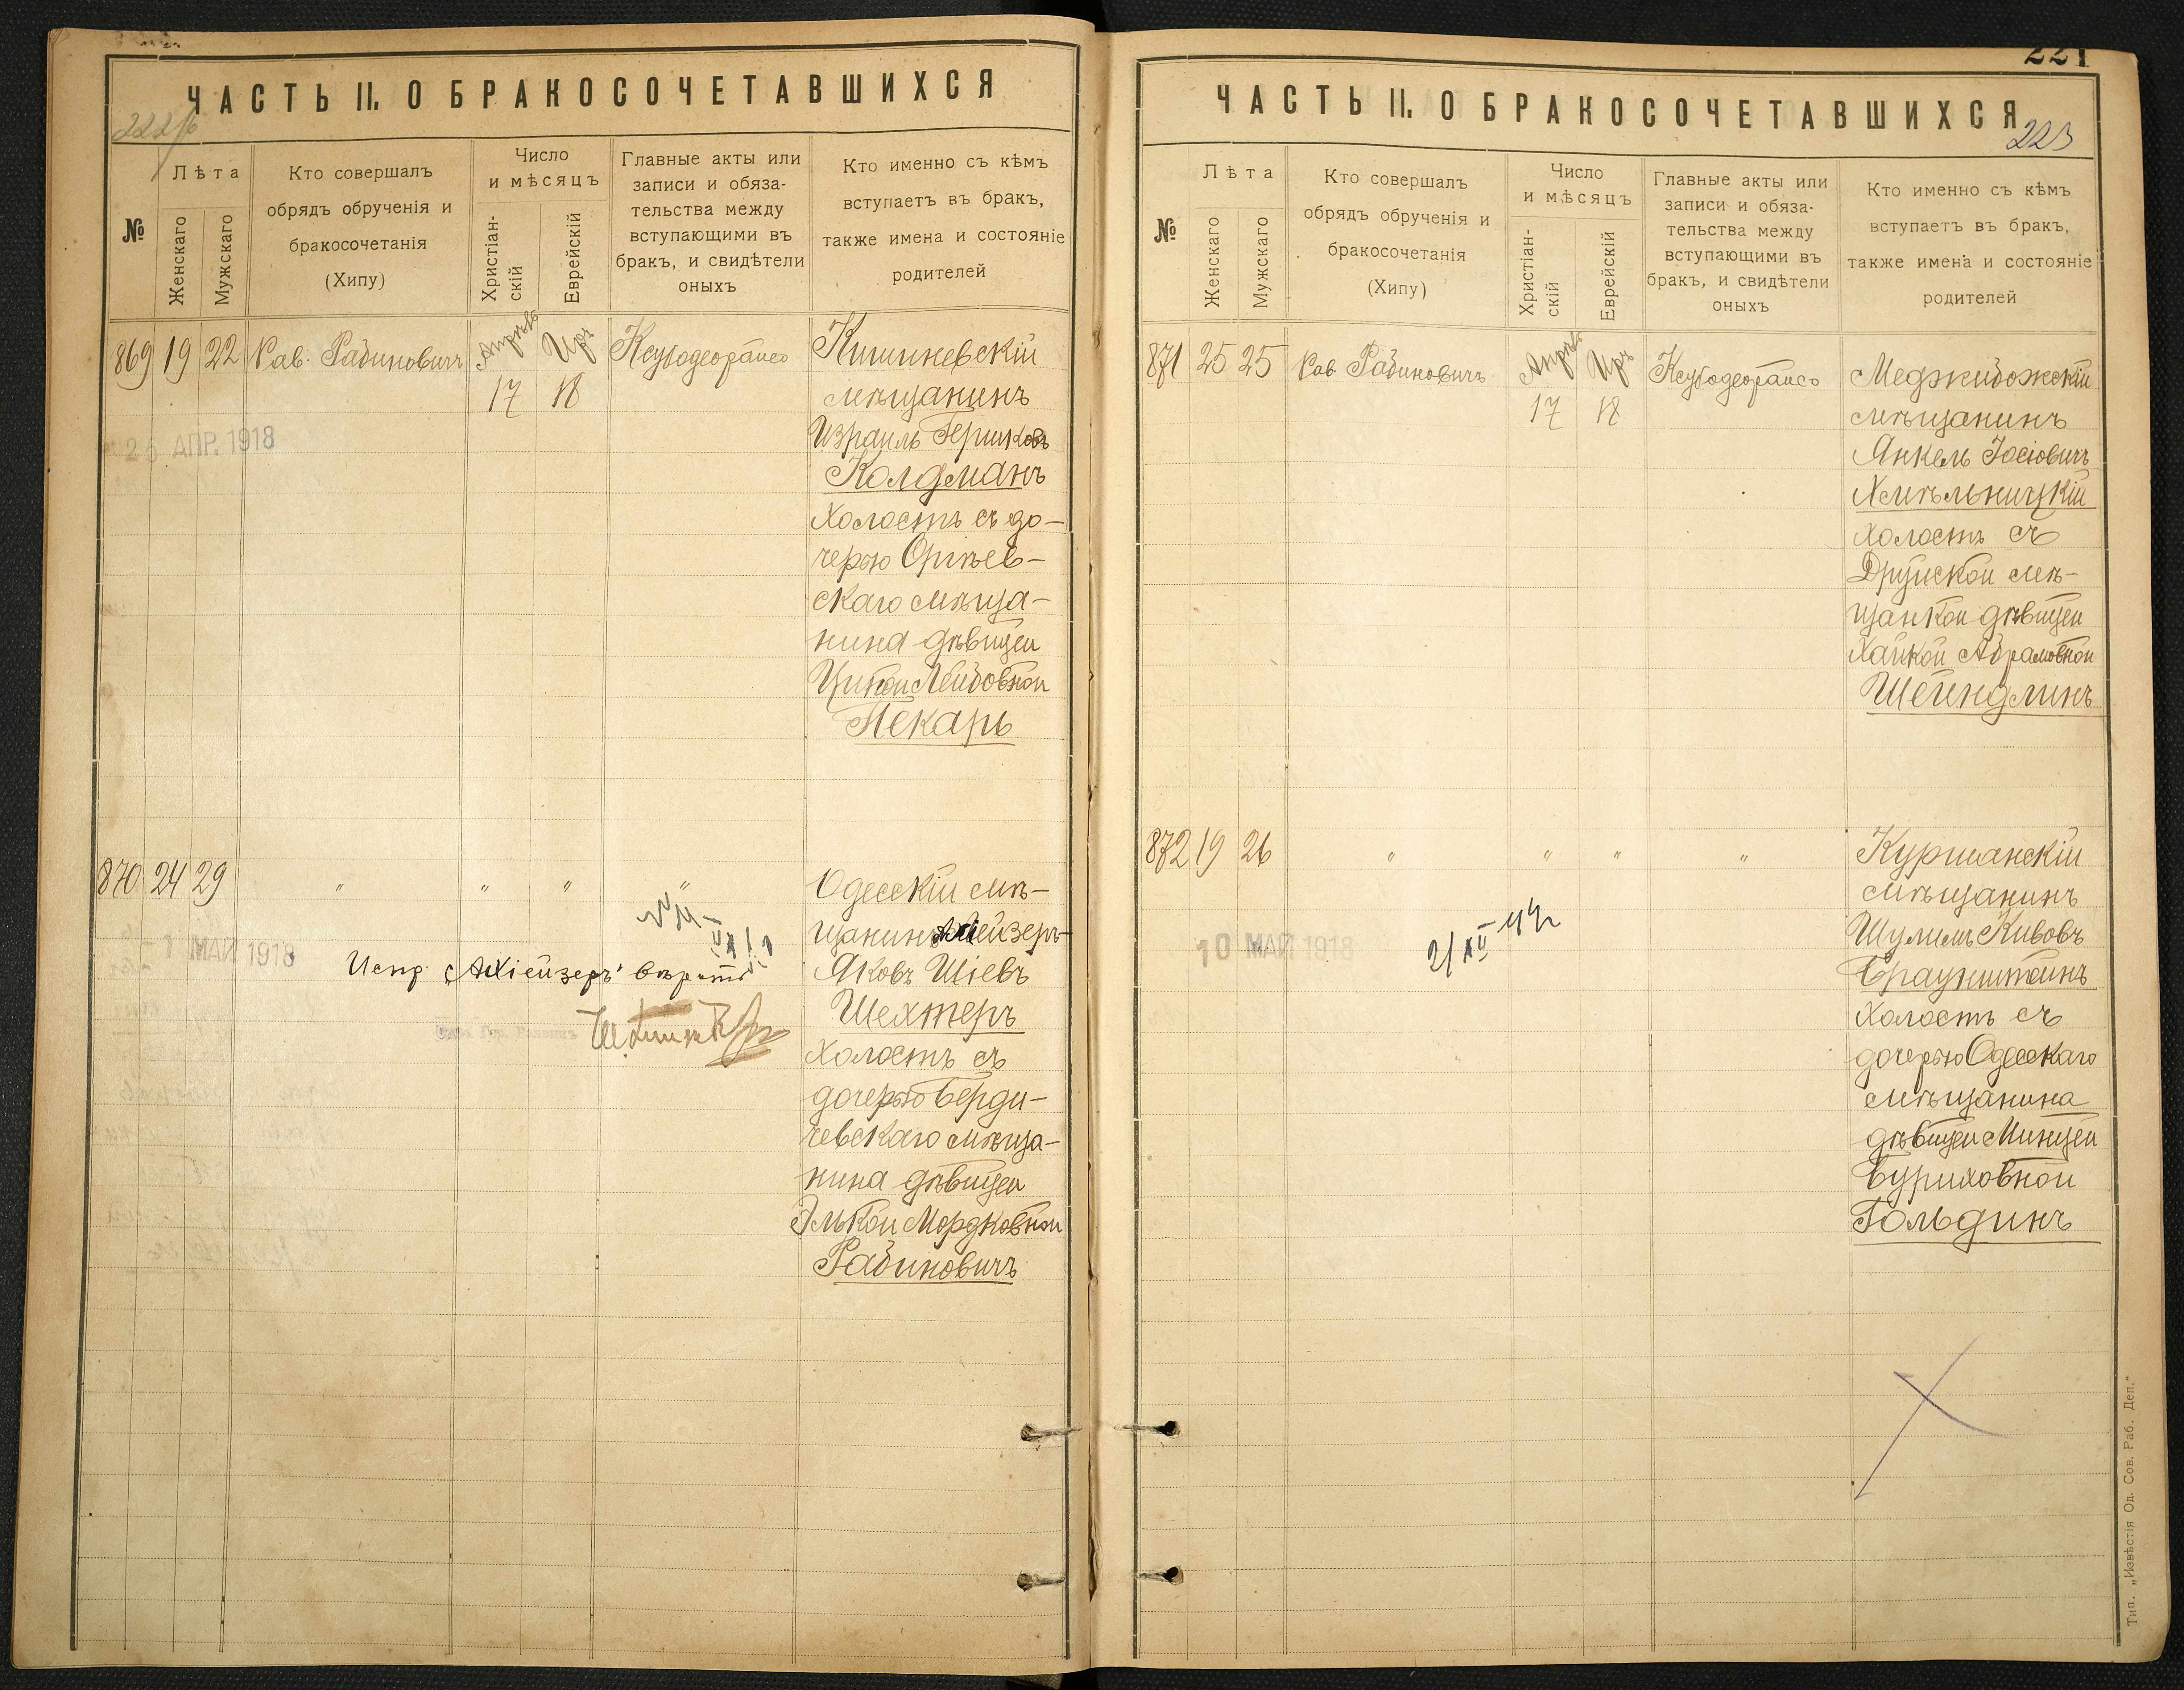 ЧАСТЬ II. О БРАКОСОЧЕТАВШИХСЯ
№
Лѣта
Женскаго
Мужскаго
Кто совершалъ
обрядъ обрученія и
бракосочетанія
(Хипу)
Число
и мѣсяцъ
Христіан-
скій
Еврейскій
Главные акты или
записи и обяза-
тельства между
вступающими въ
бракъ, и свидѣтели
оныхъ
Кто именно съ кѣмъ
вступаетъ въ бракъ,
также имена и состояніе
родителей
869 19 22 Рав. Рабиновичъ Апрѣль Иръ
17 18
Кишиневскій
мѣщанинъ
Израиль Гершковъ
Колдманъ
холостъ съ до-
черью Оргѣев-
скаго мѣща-
нина дѣвицей
Лейбовной
Пекарь
26 АПР. 1918
870 24 29 " " " "
Одесскій мѣ-
щанинъ
Яковъ Шіевъ
Шехтеръ
холостъ съ
дочерью Берди-
чевскаго мѣща-
нина дѣвицей
Элькой Мордковной
Рабиновичъ
1 МАЙ 1918
Испр. „Ахіейзеръ" вѣрить
221
ЧАСТЬ II. О БРАКОСОЧЕТАВШИХСЯ
223
№
Лѣта
Женскаго
Мужскаго
Кто совершалъ
обрядъ обрученія и
бракосочетанія
(Хипу)
Число
и мѣсяцъ
Христіан-
скій
Еврейскій
Главные акты или
записи и обяза-
тельства между
вступающими въ
бракъ, и свидѣтели
оныхъ
Кто именно съ кѣмъ
вступаетъ въ бракъ,
также имена и состояніе
родителей
871 25 25 Рав Рабиновичъ Апрѣль Иръ
17 18
Меджибожскій
мѣщанинъ
Янкель Іосіовичъ
Хмѣльницкій
холостъ съ
Друйской мѣ-
щанкой дѣвицей
Хайкой Абрамовной
Шейндлинъ
872 19 26 " " " "
Куршанскій
мѣщанинъ
Шулимъ Кивовъ
Браунштейнъ
холостъ съ
дочерью Одесскаго
мѣщанина
дѣвицей Минцей
Буриховной
Гольдинъ
10 МАЙ 1918
Тип. „Извѣстія Од. Сов. Раб. Деп."